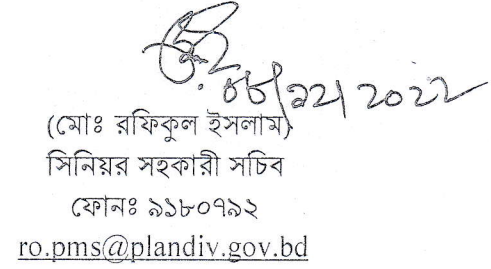 ০৮/১২/২০২২
(মোঃ রফিকুল ইসলাম)
সিনিয়র সহকারী সচিব
ফোনঃ ৯১৮০৭৯২
ro.pms@plandiv.gov.bd